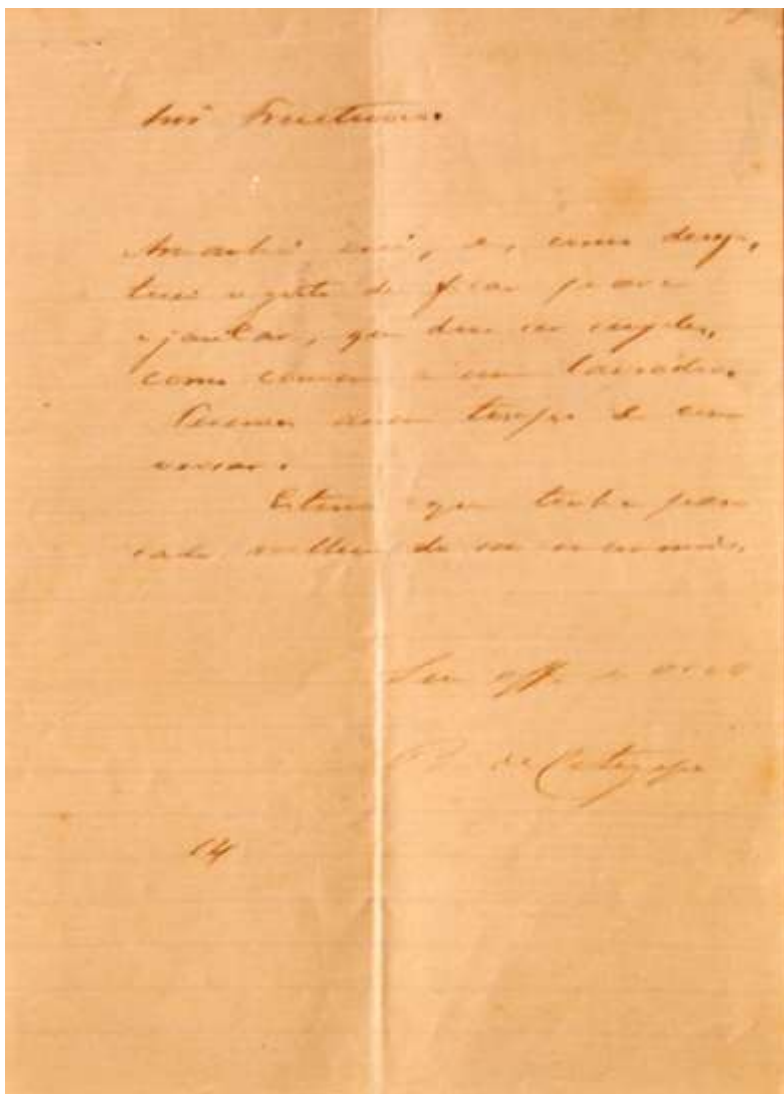 Amanhã irei, e, como desejo,
terei o gosto de ficar para
o jantar, que deve ser simples,
como convem a um Lavrador.
Teremos assim tempo de con
versar.
Estimo que tenha pas
sado melhor de seu incommodo.
Seu
B. de Cotegipe
14